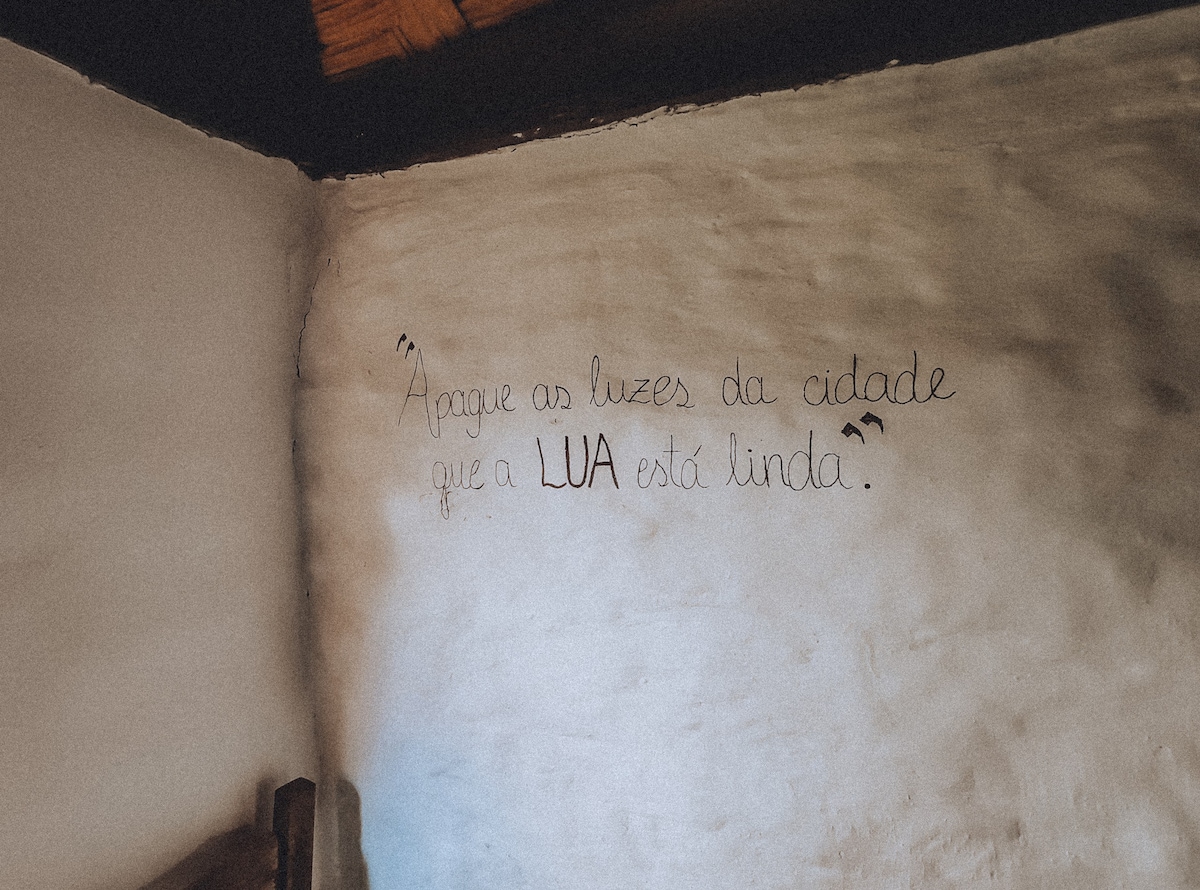 "Apague as luzes da cidade
que a LUA está linda".